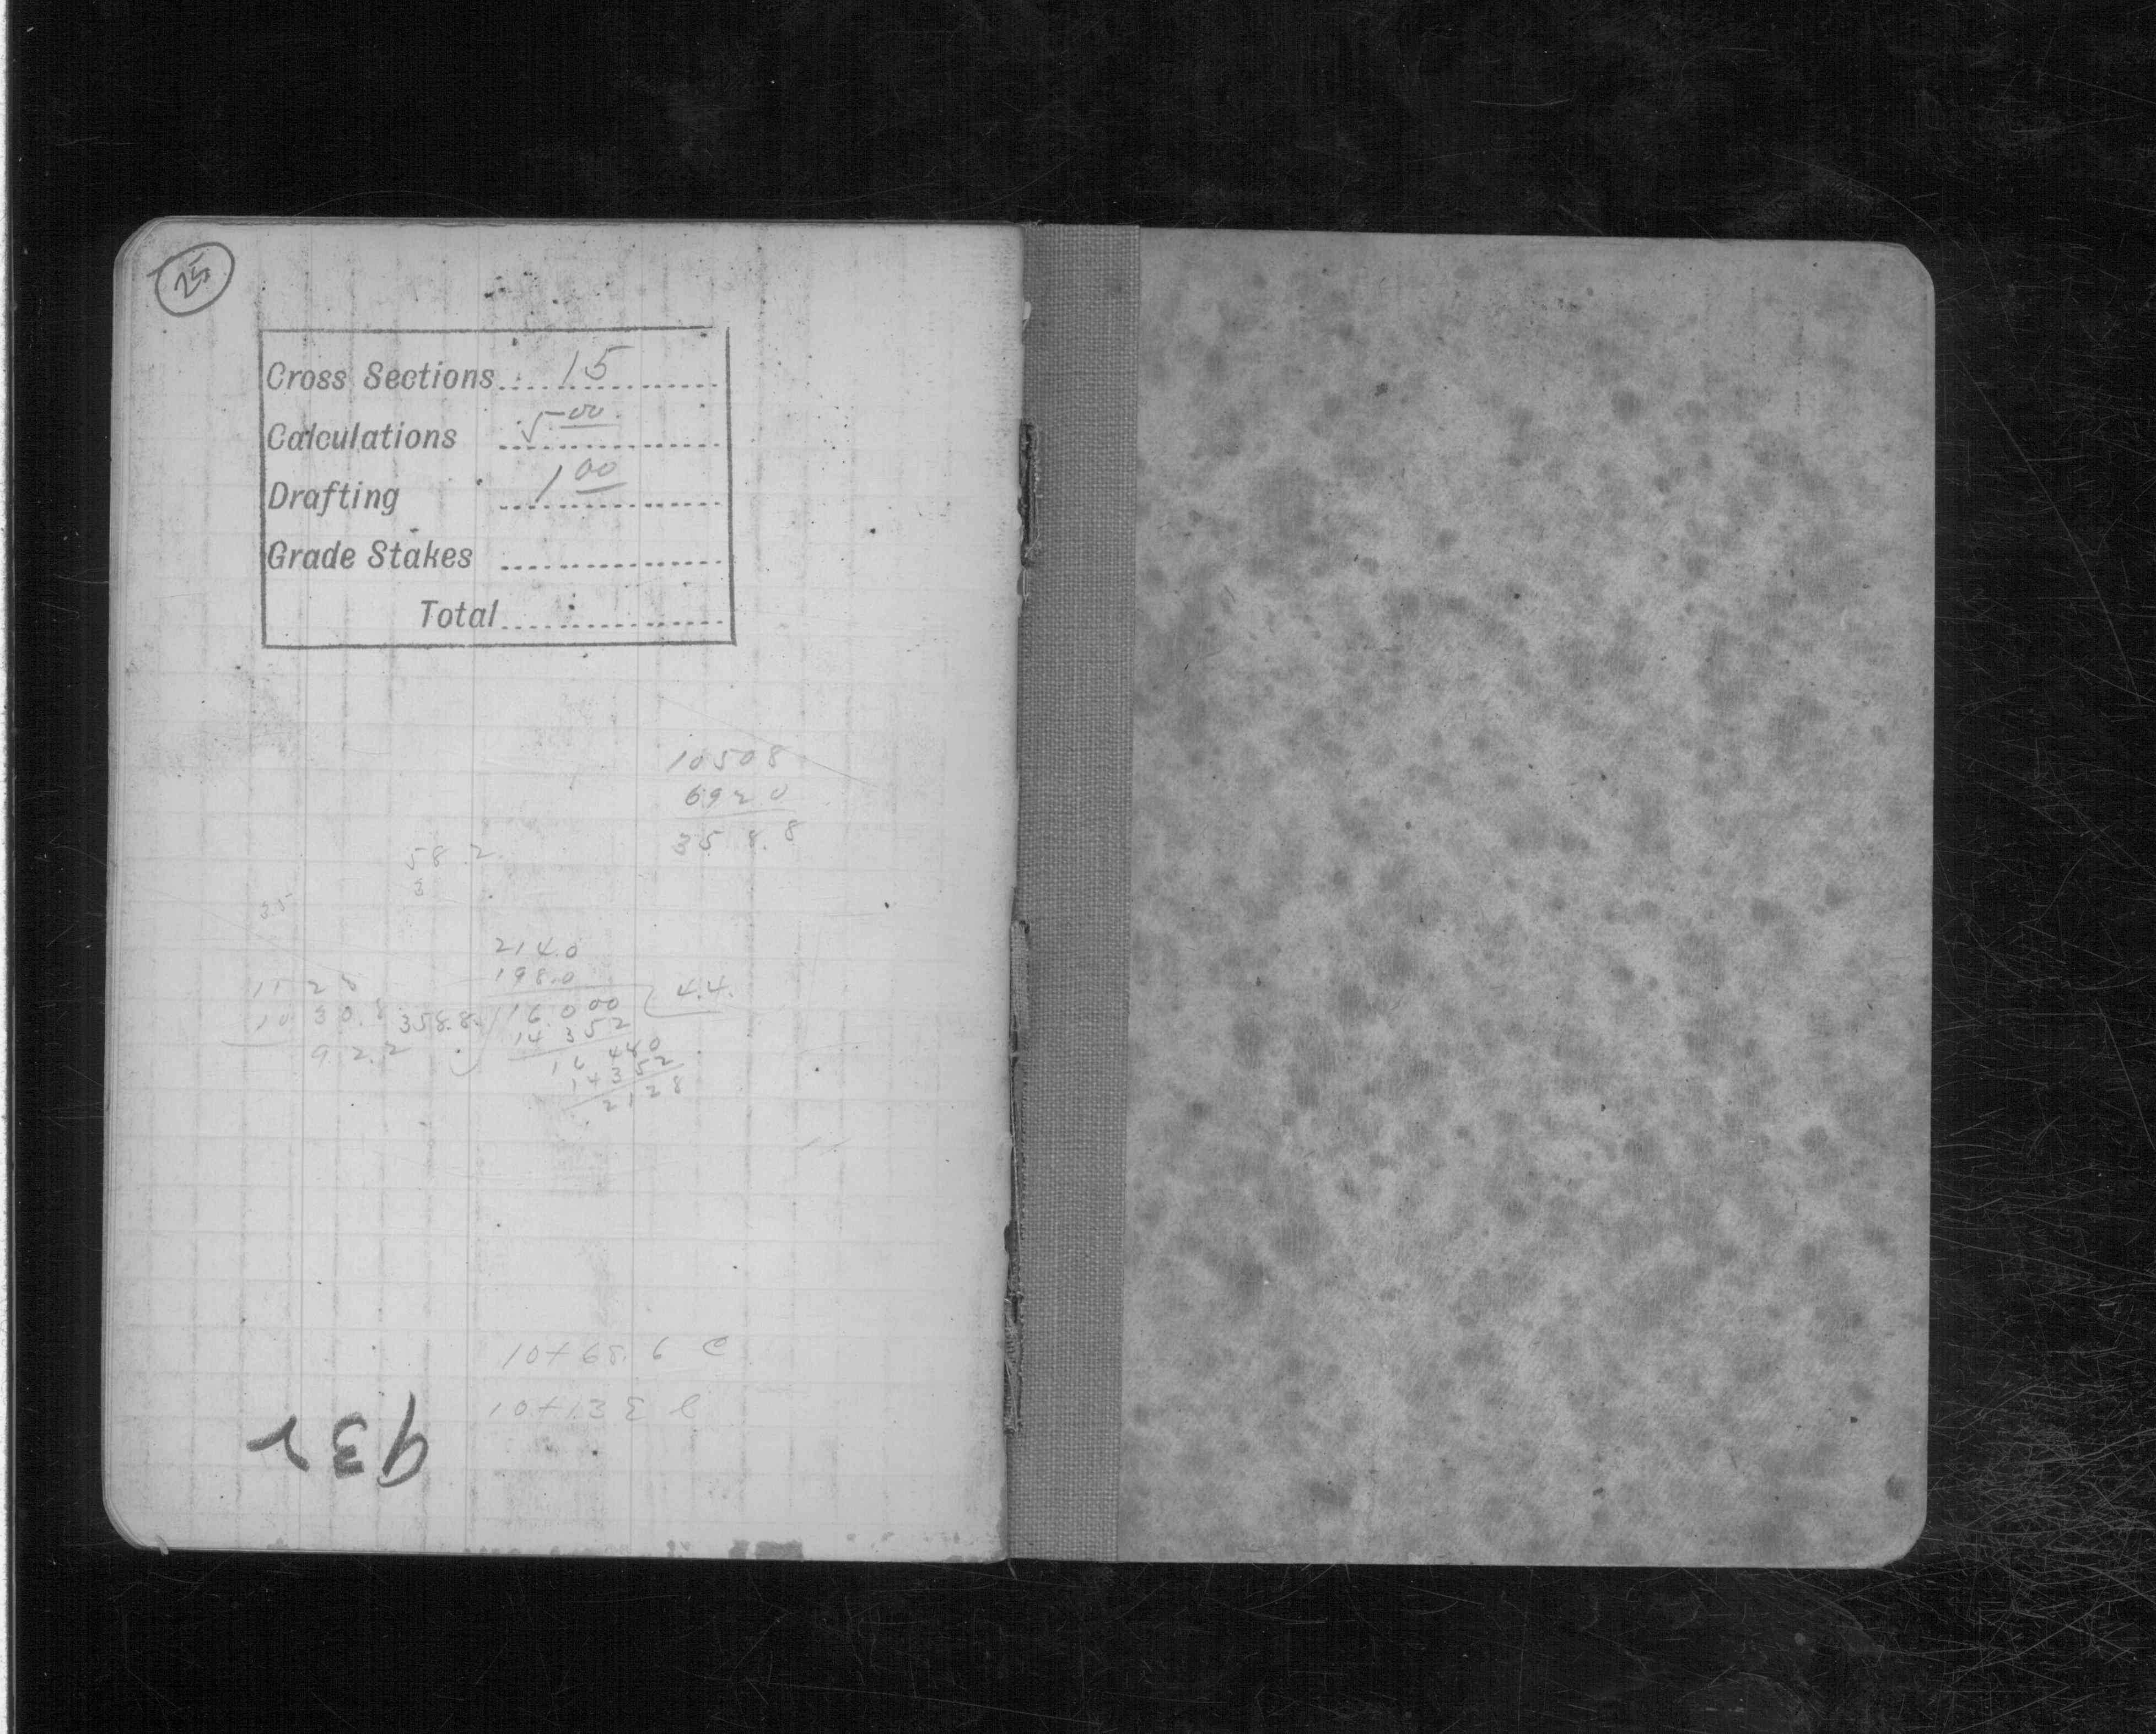 25
Cross Sections 15
Calculations 5.00
Drafting 1 00
Grade Stakes
Total
10508
6920
358.8
58.2
3
35
214.0
198.0
1128
4.4.
1030.8 358.8 16.000
14 352
92.2
16 480
14352
2128
932